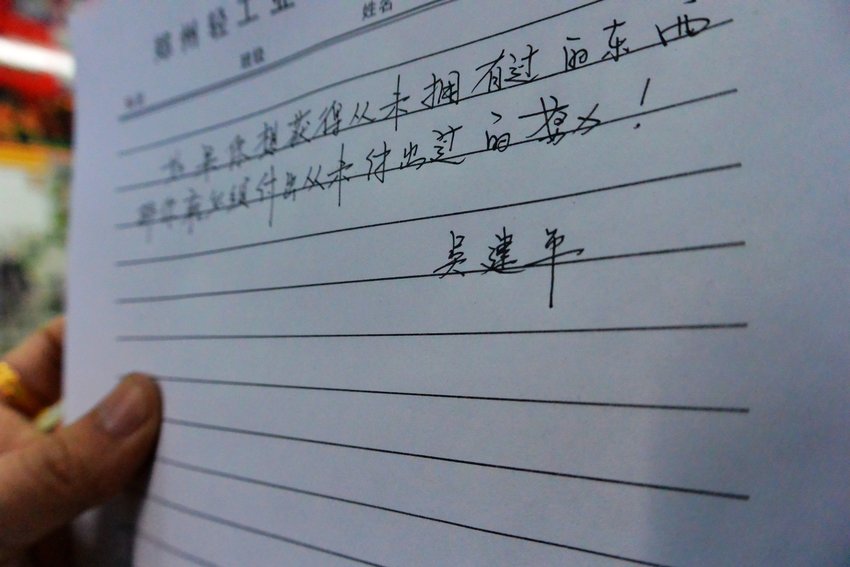 郑州轻工业
班级 姓名
当你想获得从未拥有过的东西
那你就必须付出从未付出过的努力！
吴建平